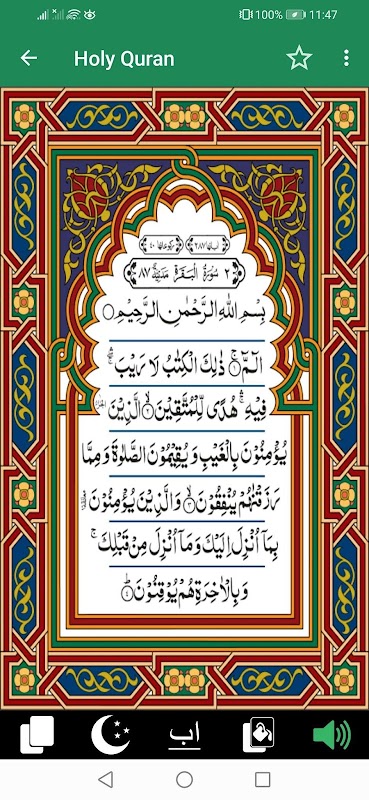 100% 11:47
Holy Quran
اٰیاتھا ٢٨٦ رکوعاتھا ٤٠
٢ سُوْرَةُ الْبَقَرَةِ مَدَنِيَّةٌ ٨٧
بِسْمِ اللّٰهِ الرَّحْمٰنِ الرَّحِيْمِ
الٓمّٓ ۚ﴿١﴾ ذٰلِكَ الْكِتٰبُ لَا رَيْبَ ۛۖ
فِيْهِ ۛۚ هُدًى لِّلْمُتَّقِيْنَ ۙ﴿٢﴾ الَّذِيْنَ
يُؤْمِنُوْنَ بِالْغَيْبِ وَ يُقِيْمُوْنَ الصَّلٰوةَ وَ مِمَّا
رَزَقْنٰهُمْ يُنْفِقُوْنَ ۙ﴿٣﴾ وَ الَّذِيْنَ يُؤْمِنُوْنَ
بِمَاۤ اُنْزِلَ اِلَيْكَ وَ مَاۤ اُنْزِلَ مِنْ قَبْلِكَ ۚ
وَ بِالْاٰخِرَةِ هُمْ يُوْقِنُوْنَ ؕ﴿٤﴾
اب